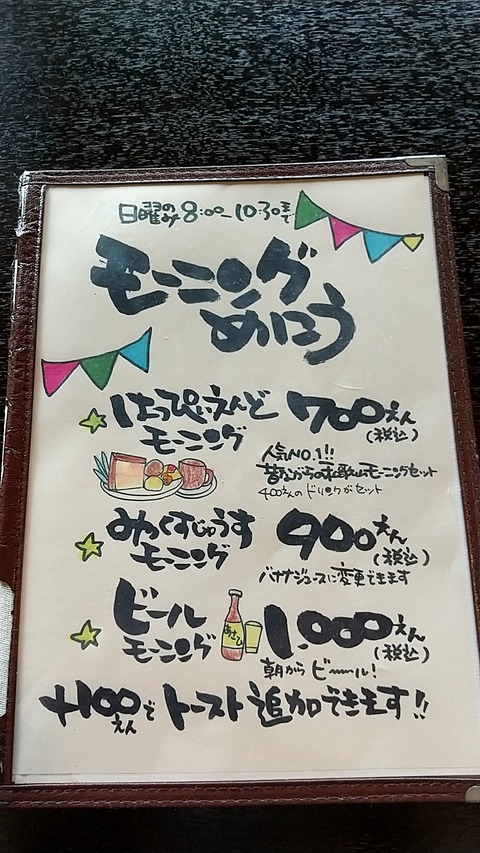 日曜のみ8:00~10:30まで
モーニング
めにう
はっぴぃえんど
モーニング
700えん
(税込)
人気NO.1!!
昔ながらの和歌山モーニングセット
400えんのドリンクがセット
みっくすじゅうす
モーニング
900えん
(税込)
バナナジュースに変更できます
ビール
モーニング
あさひ
1,000えん
(税込)
朝からビーール!
+100えんでトースト追加できます!!